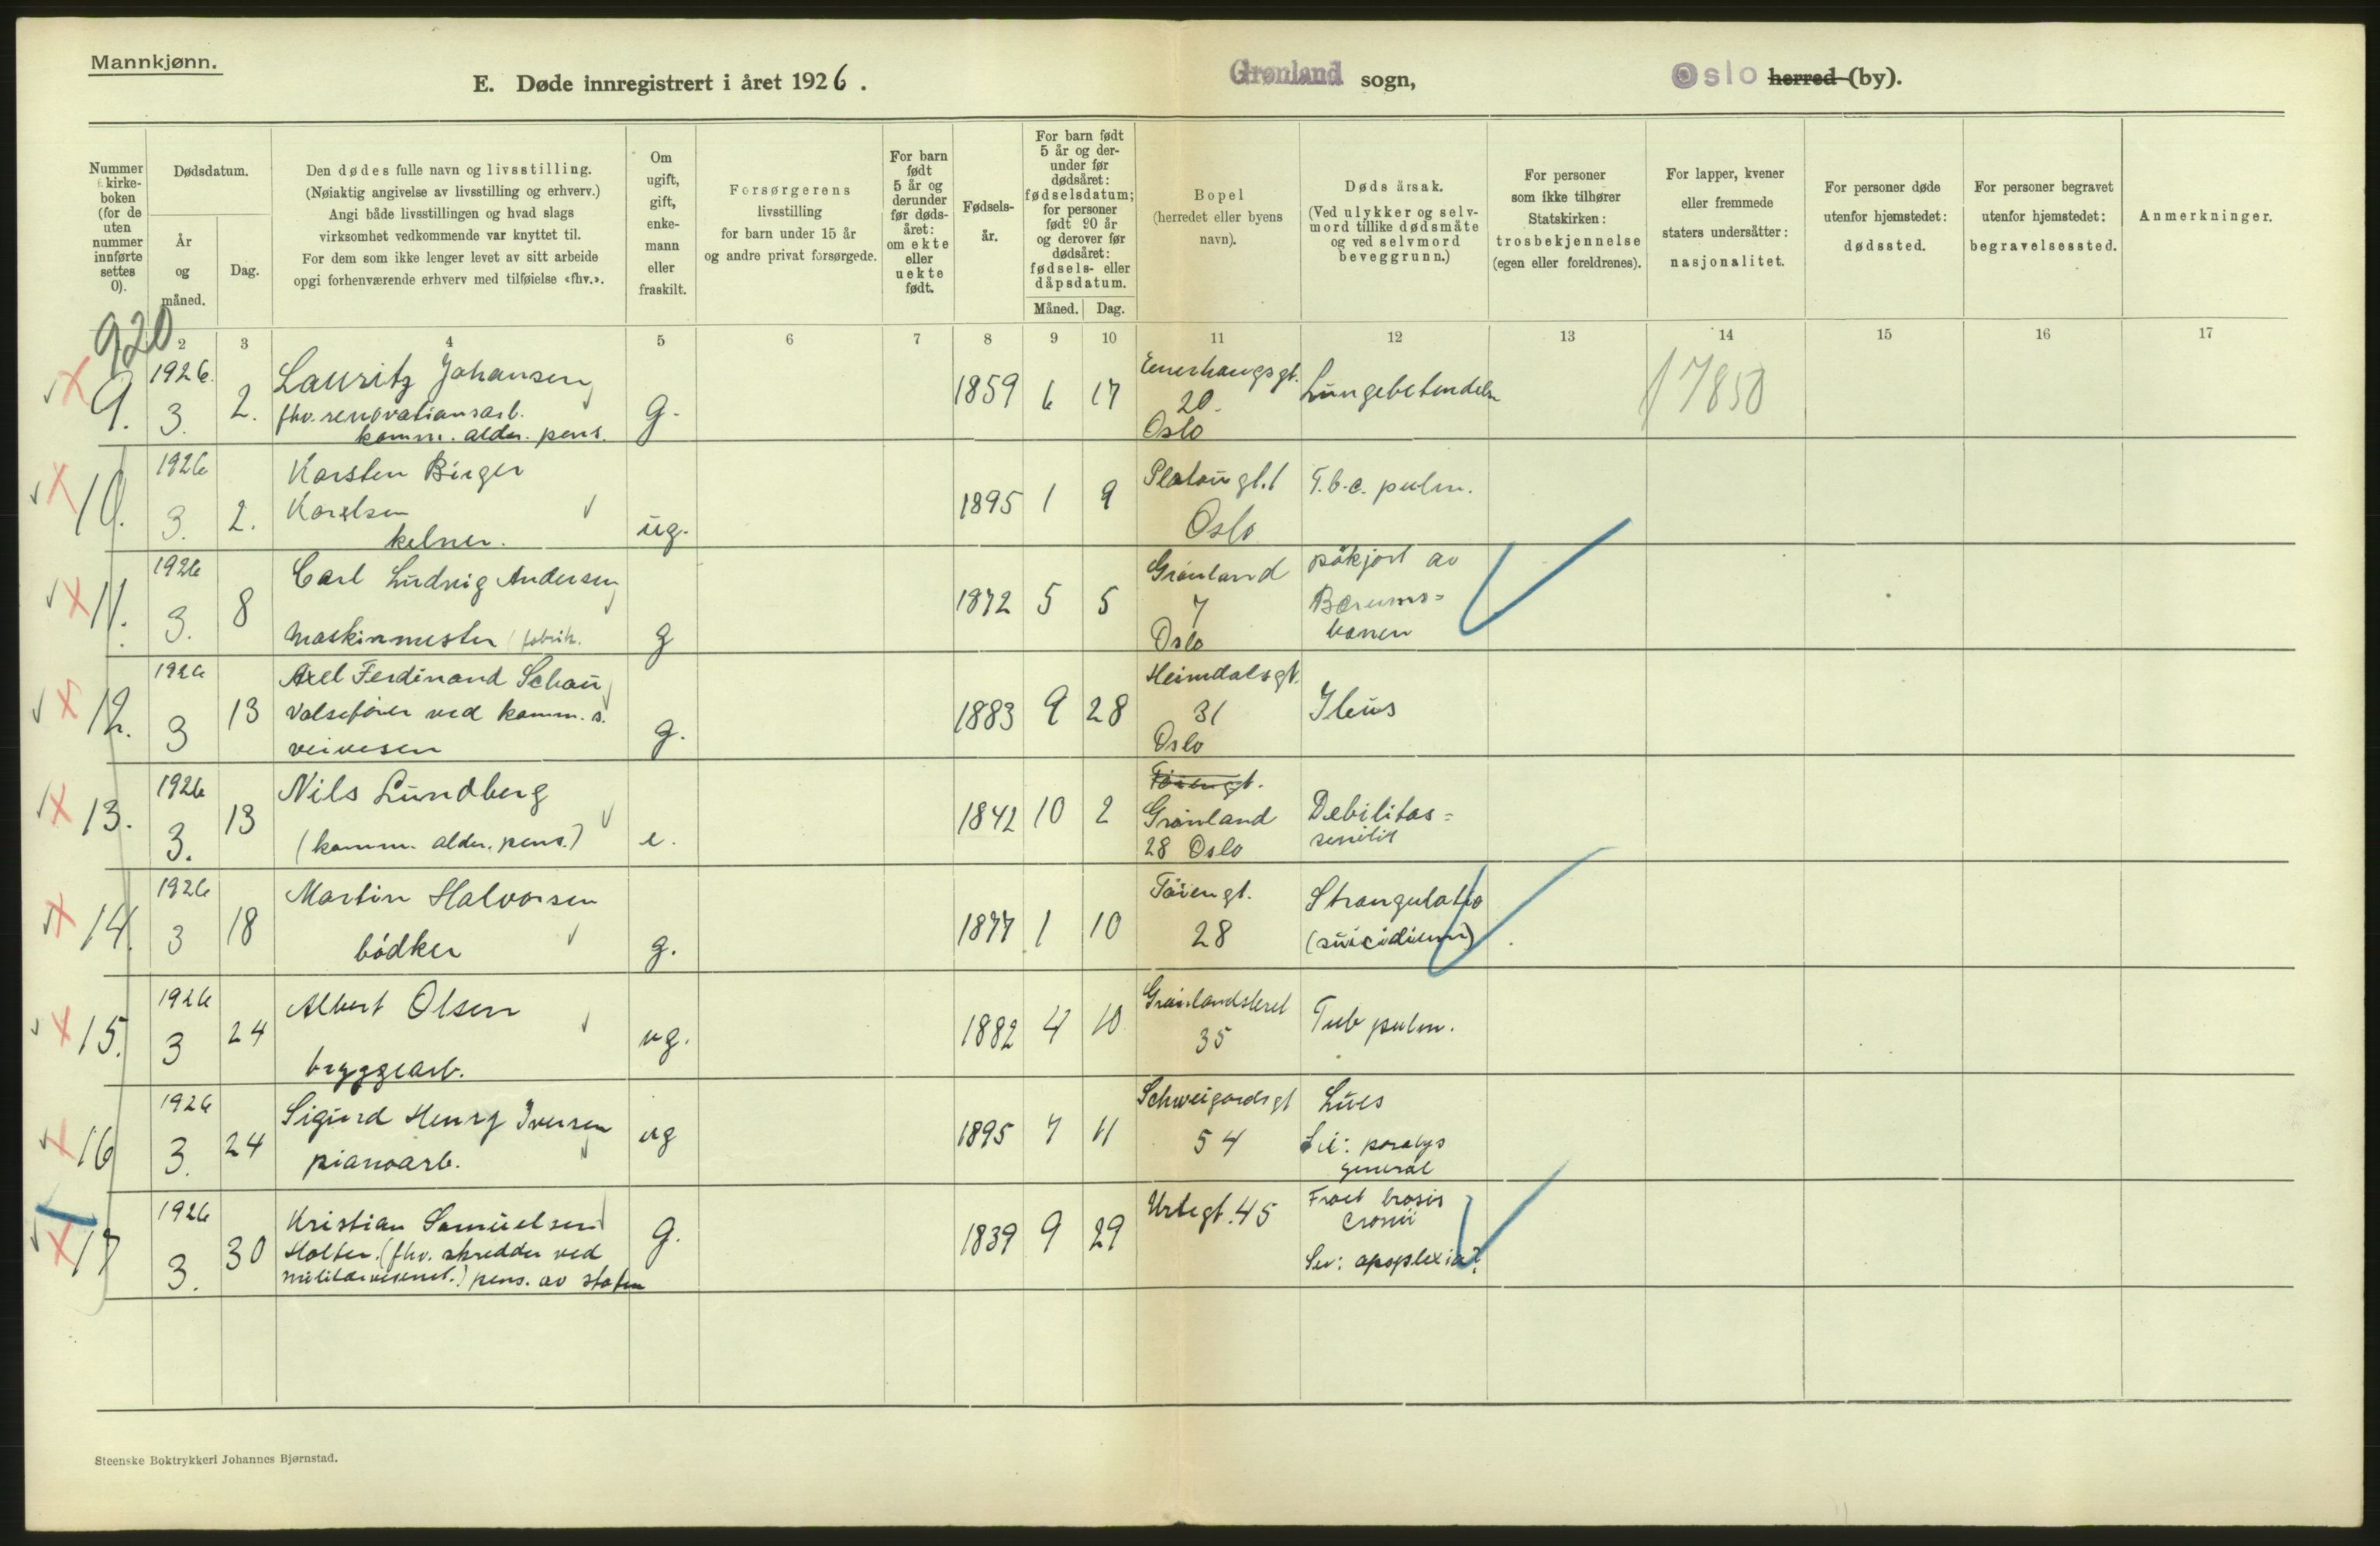 Mannkjønn.
E. Døde innregistrert i året 1926.
Grønland sogn,
Oslo herred (by).
Nummer
i kirke-
boken
(for de
uten
nummer
innførte
settes
0).
Dødsdatum.
År
og
måned.
Dag.
Den dødes fulle navn og livsstilling.
(Nøiaktig angivelse av livsstilling og erhverv.)
Angi både livsstillingen og hvad slags
virksomhet vedkommende var knyttet til.
For dem som ikke lenger levet av sitt arbeide
opgi forhenværende erhverv med tilføielse «fhv.».
Om
ugift,
gift,
enke-
mann
eller
fraskilt.
Forsørgerens
livsstilling
for barn under 15 år
og andre privat forsørgede.
For barn
født
5 år og
derunder
før døds-
året:
om ekte
eller
uekte
født.
Fødsels-
år.
For barn født
5 år og der-
under før
dødsåret:
fødselsdatum;
for personer
født 90 år
og derover før
dødsåret:
fødsels- eller
dåpsdatum.
Måned. Dag.
Bopel
(herredet eller byens
navn).
Døds årsak.
(Ved ulykker og selv-
mord tillike dødsmåte
og ved selvmord
beveggrunn.)
For personer
som ikke tilhører
Statskirken:
trosbekjennelse
(egen eller foreldrenes).
For lapper, kvener
eller fremmede
staters undersåtter:
nasjonalitet.
For personer døde
utenfor hjemstedet:
dødssted.
For personer begravet
utenfor hjemstedet:
begravelsessted.
Anmerkninger.
920
2 3 4 5 6 7 8 9 10 11 12 13 14 15 16 17
9. 1926. 3. 2. Lauritz Johansen
fhv. renovationsarb.
komm. alder. pens.
g. 1859 6 17
Enerhaugsgt.
20.
Oslo
Lungebetendelse
17850
10. 1926 3. 2. Karsten Birger
Karlsen
kelner.
ug. 1895 1 9
Platougt. 1
Oslo
T.b.c. pulm.
11. 1926 3. 8 Carl Ludvig Andersen
maskinmester fabrik.
g 1872 5 5
Grønland
7
Oslo
påkjørt av
Bærums=
banen
12. 1926 3 13 Axel Ferdinand Schau
Valsefører ved komm. s.
veivesen
g. 1883 9 28
Heimdalsgt.
31
Oslo
Ileus
13. 1926 3. 13 Nils Lundberg
(komm. alder. pens.)
e. 1842 10 2
Tøiengt.
Grønland
28 Oslo
Debilitas=
senilis
14. 1926 3 18 Martin Halvorsen
bødker
g. 1877 1 10
Tøiengt.
28
Strangulatio
(suicidium)
15. 1926 3 24 Albert Olsen
bryggearb.
ug. 1882 4 10
Grønlandsleret
35
Tub pulm.
16 1926 3. 24 Sigurd Henry Iversen
pianoarb.
ug 1895 7 11
Schweigaardsgt
54
Lues
paralys
general
17 1926 3. 30 Kristian Samuelsen
Holter. (fhv. skredder ved
militærvesenet.) pens. av staten
g. 1839 9 29
Urtegt. 45
Fract basis
cranii
Sev: apoplexia?
Steenske Boktrykkeri Johannes Bjørnstad.